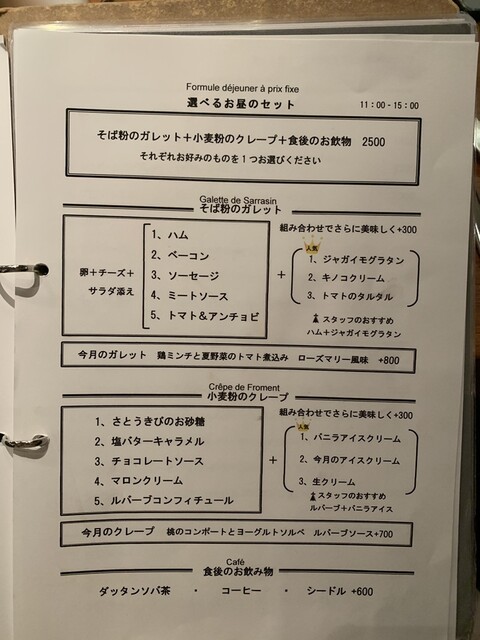 Formule déjeuner à prix fixe
選べるお昼のセット 11：00‐15：00
そば粉のガレット＋小麦粉のクレープ＋食後のお飲物 2500
それぞれお好みのものを１つお選びください
Galette de Sarrasin
そば粉のガレット
組み合わせでさらに美味しく+300
卵＋チーズ＋
サラダ添え
1、ハム
2、ベーコン
3、ソーセージ
4、ミートソース
5、トマト＆アンチョビ
＋
人気
1、ジャガイモグラタン
2、キノコクリーム
3、トマトのタルタル
スタッフのおすすめ
ハム＋ジャガイモグラタン
今月のガレット 鶏ミンチと夏野菜のトマト煮込み ローズマリー風味 +800
Crêpe de Froment
小麦粉のクレープ
組み合わせでさらに美味しく+300
1、さとうきびのお砂糖
2、塩バターキャラメル
3、チョコレートソース
4、マロンクリーム
5、ルバーブコンフィチュール
＋
人気
1、バニラアイスクリーム
2、今月のアイスクリーム
3、生クリーム
スタッフのおすすめ
ルバーブ＋バニラアイス
今月のクレープ 桃のコンポートとヨーグルトソルベ ルバーブソース+700
Café
食後のお飲み物
ダッタンソバ茶 ・ コーヒー ・ シードル +600